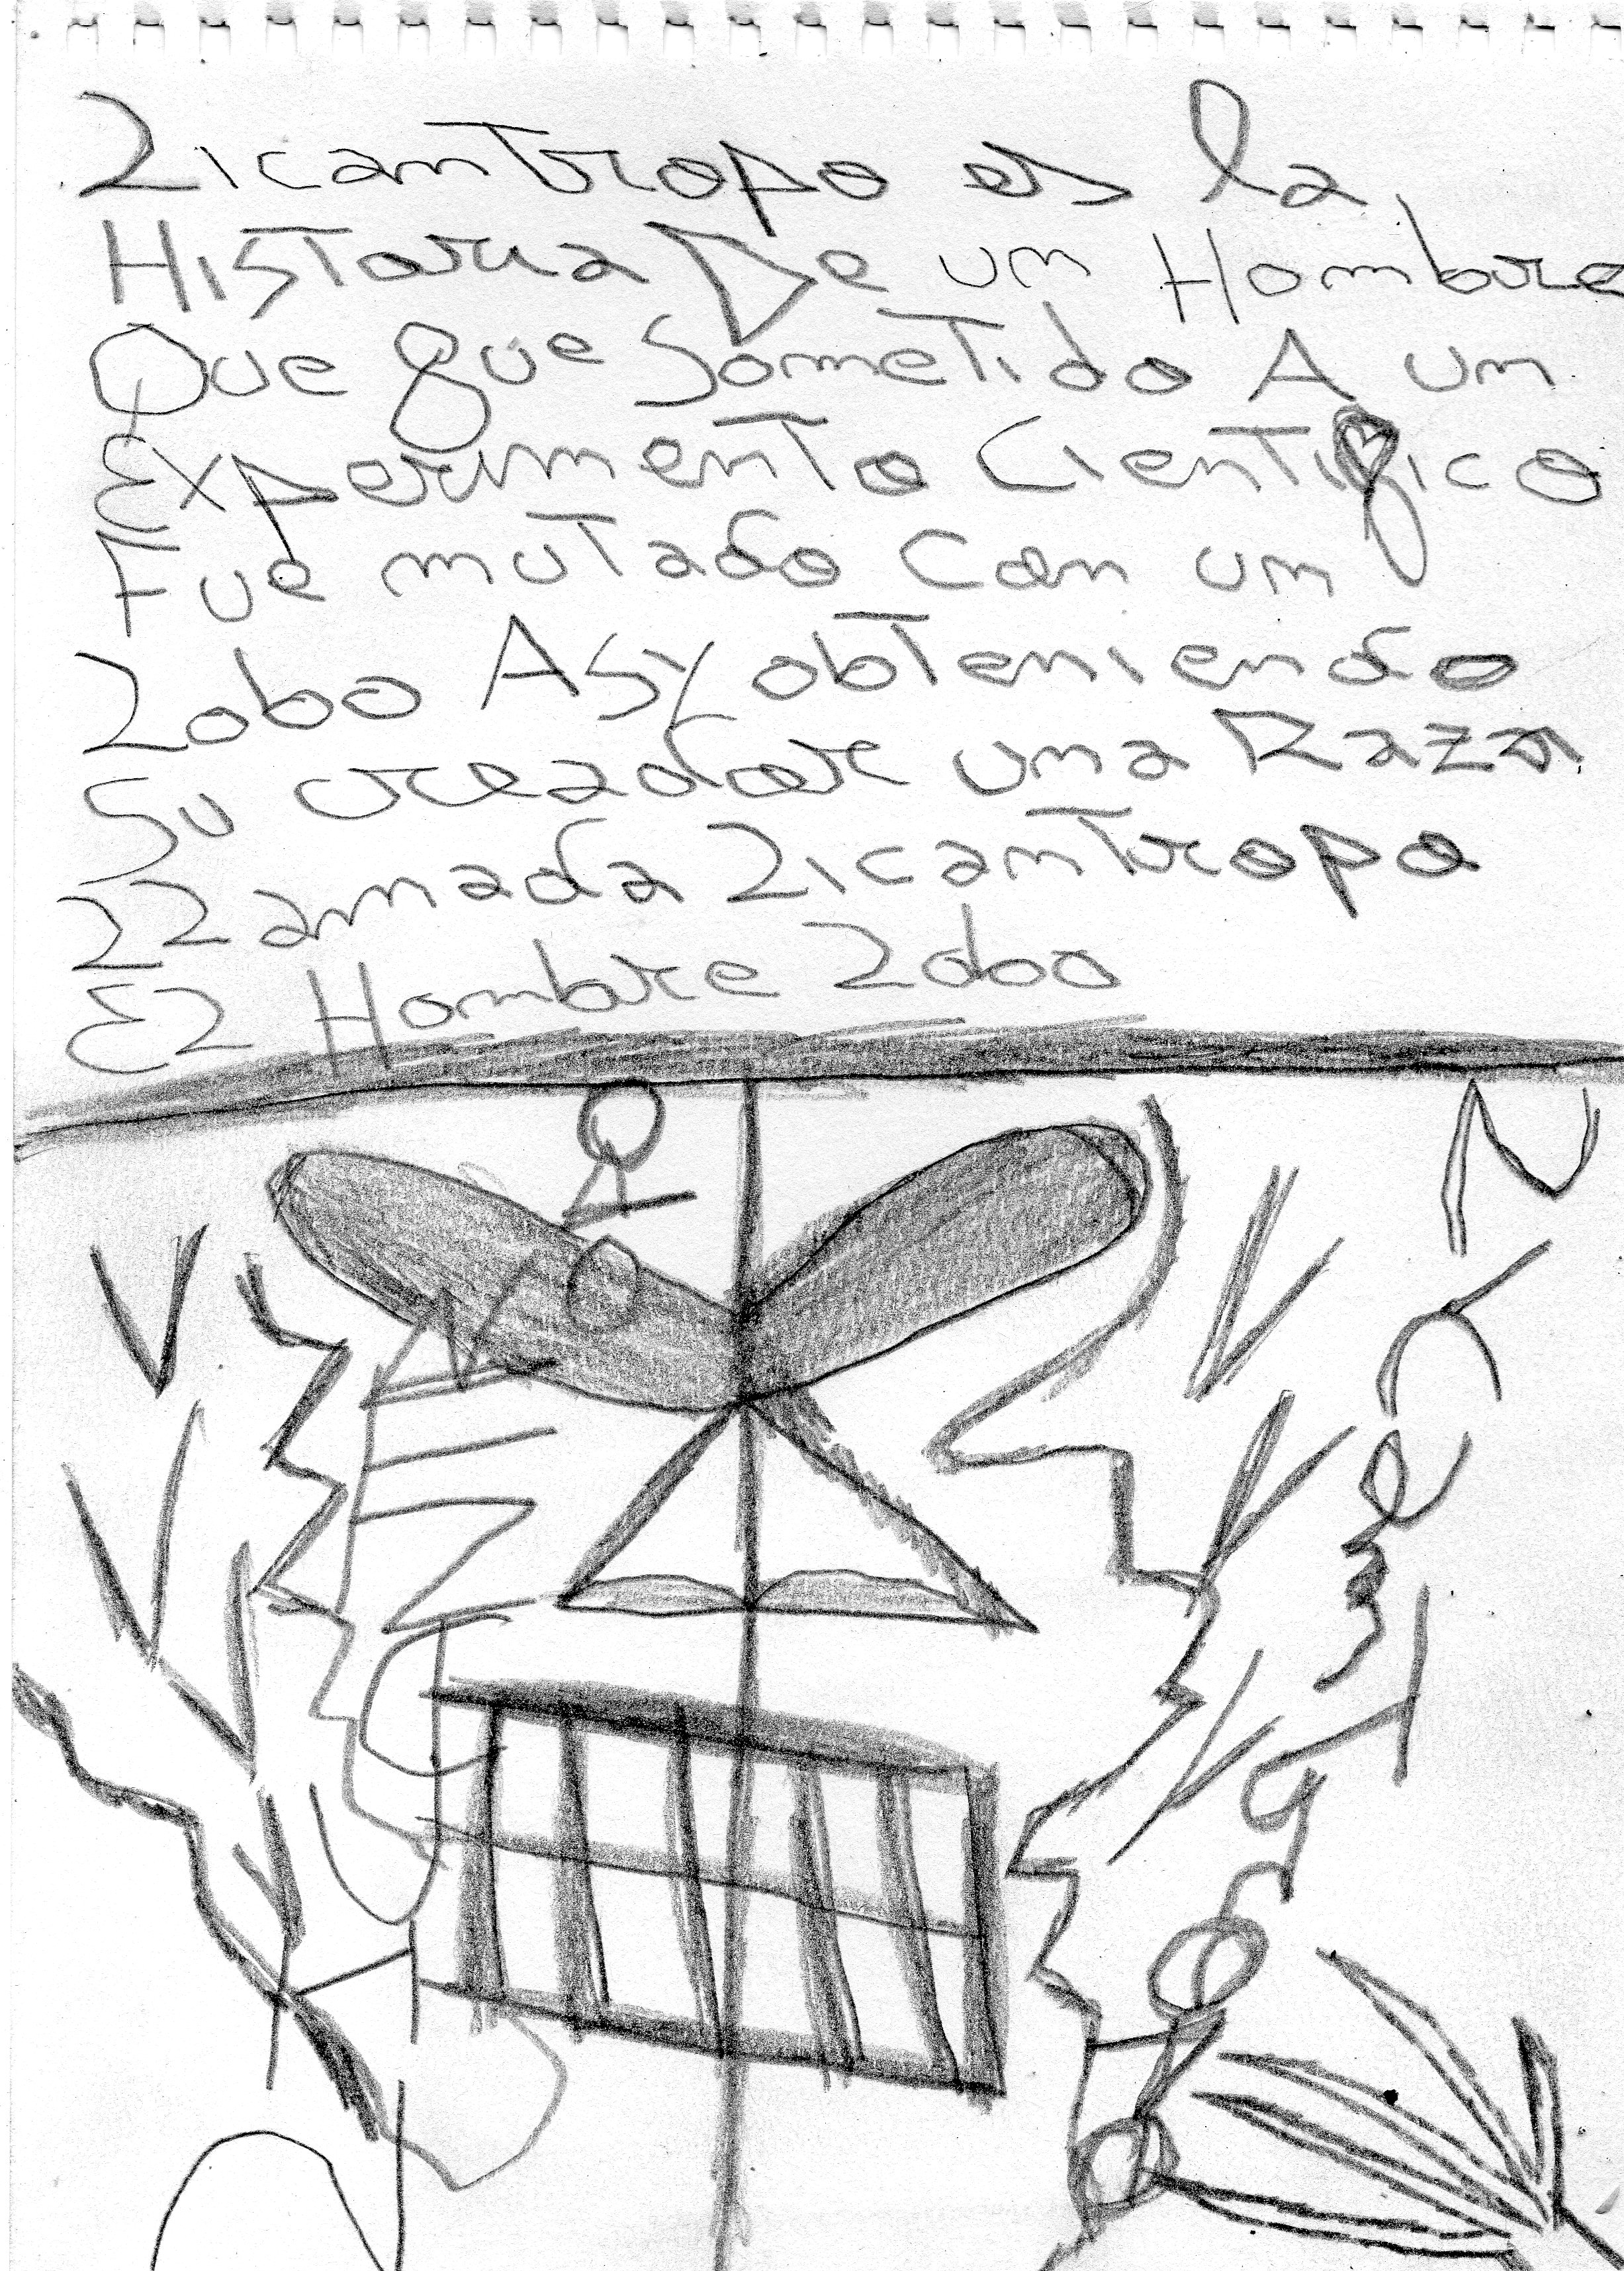 Licantropo es la
Historia De un Hombre
Que fue Sometido A un
Experimento Cientifico
Fue mutado Con un
Lobo Asy obteniendo
Su creador una Raza
LLamada Licantropo
EL Hombre Lobo